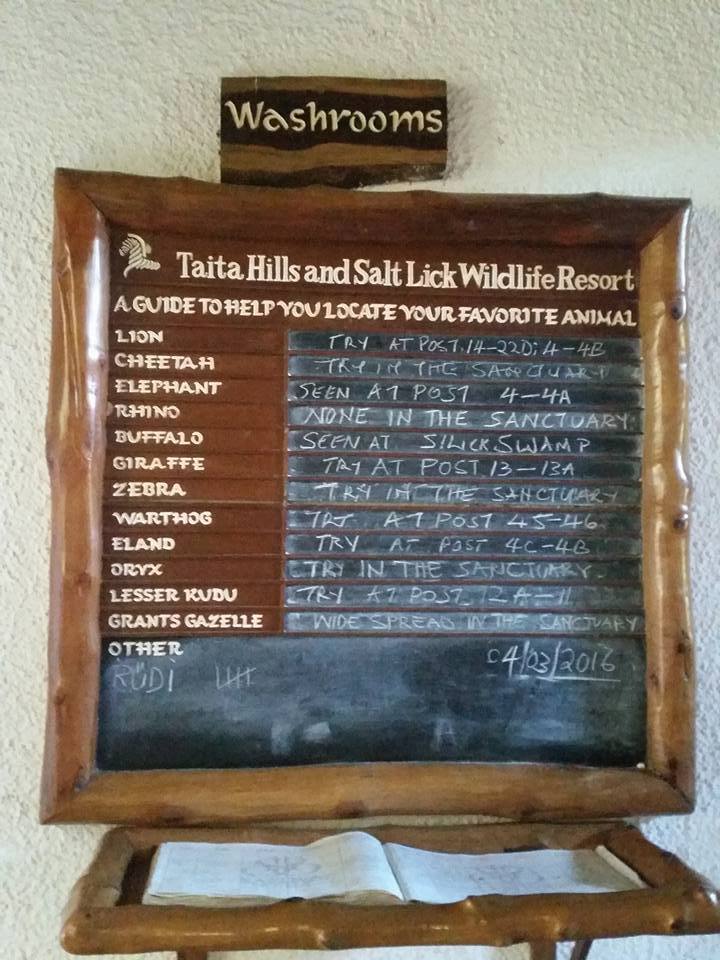 Washrooms
Taita Hills and Salt Lick Wildlife Resort
A GUIDE TO HELP YOU LOCATE YOUR FAVORITE ANIMAL
LION TRY AT POST.14-22D; 4-4B
CHEETAH TRY IN THE SANCTUARY
ELEPHANT SEEN AT POST 4-4A
RHINO NONE IN THE SANCTUARY.
BUFFALO SEEN AT S/LICK SWAMP
GIRAFFE TRY AT POST 13-13A
ZEBRA TRY IN THE SANCTUARY
WARTHOG TRY AT POST 45-46
ELAND TRY AT POST 4C-4B
ORYX TRY IN THE SANCTUARY.
LESSER KUDU TRY AT POST 12A-11
GRANTS GAZELLE WIDE SPREAD IN THE SANCTUARY
OTHER 04/03/2016
RÜDI